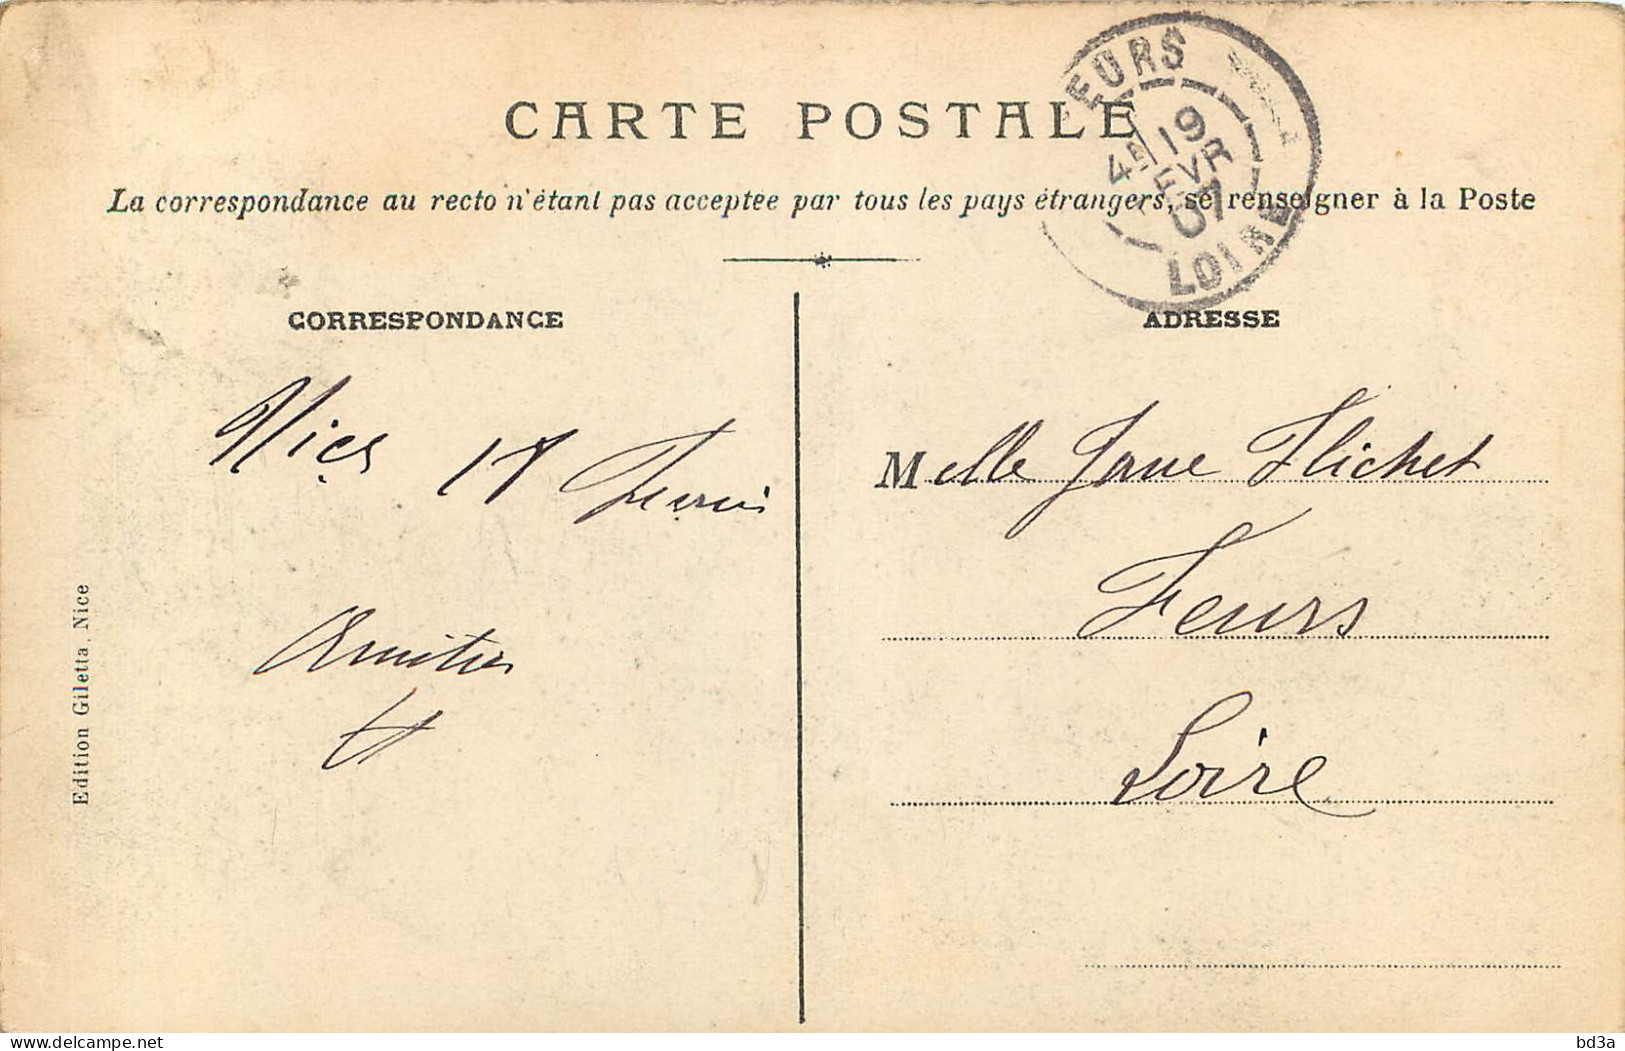 CARTE POSTALE
EURS
4E 19
EVR
07
LOIRE
La correspondance au recto n'étant pas acceptée par tous les pays étrangers, se renseigner à la Poste
CORRESPONDANCE
Nice 17
Amitiés
Edition Giletta, Nice
ADRESSE
Melle Jane Flichet
Feurs
Loire
bd3a
delcampe.net